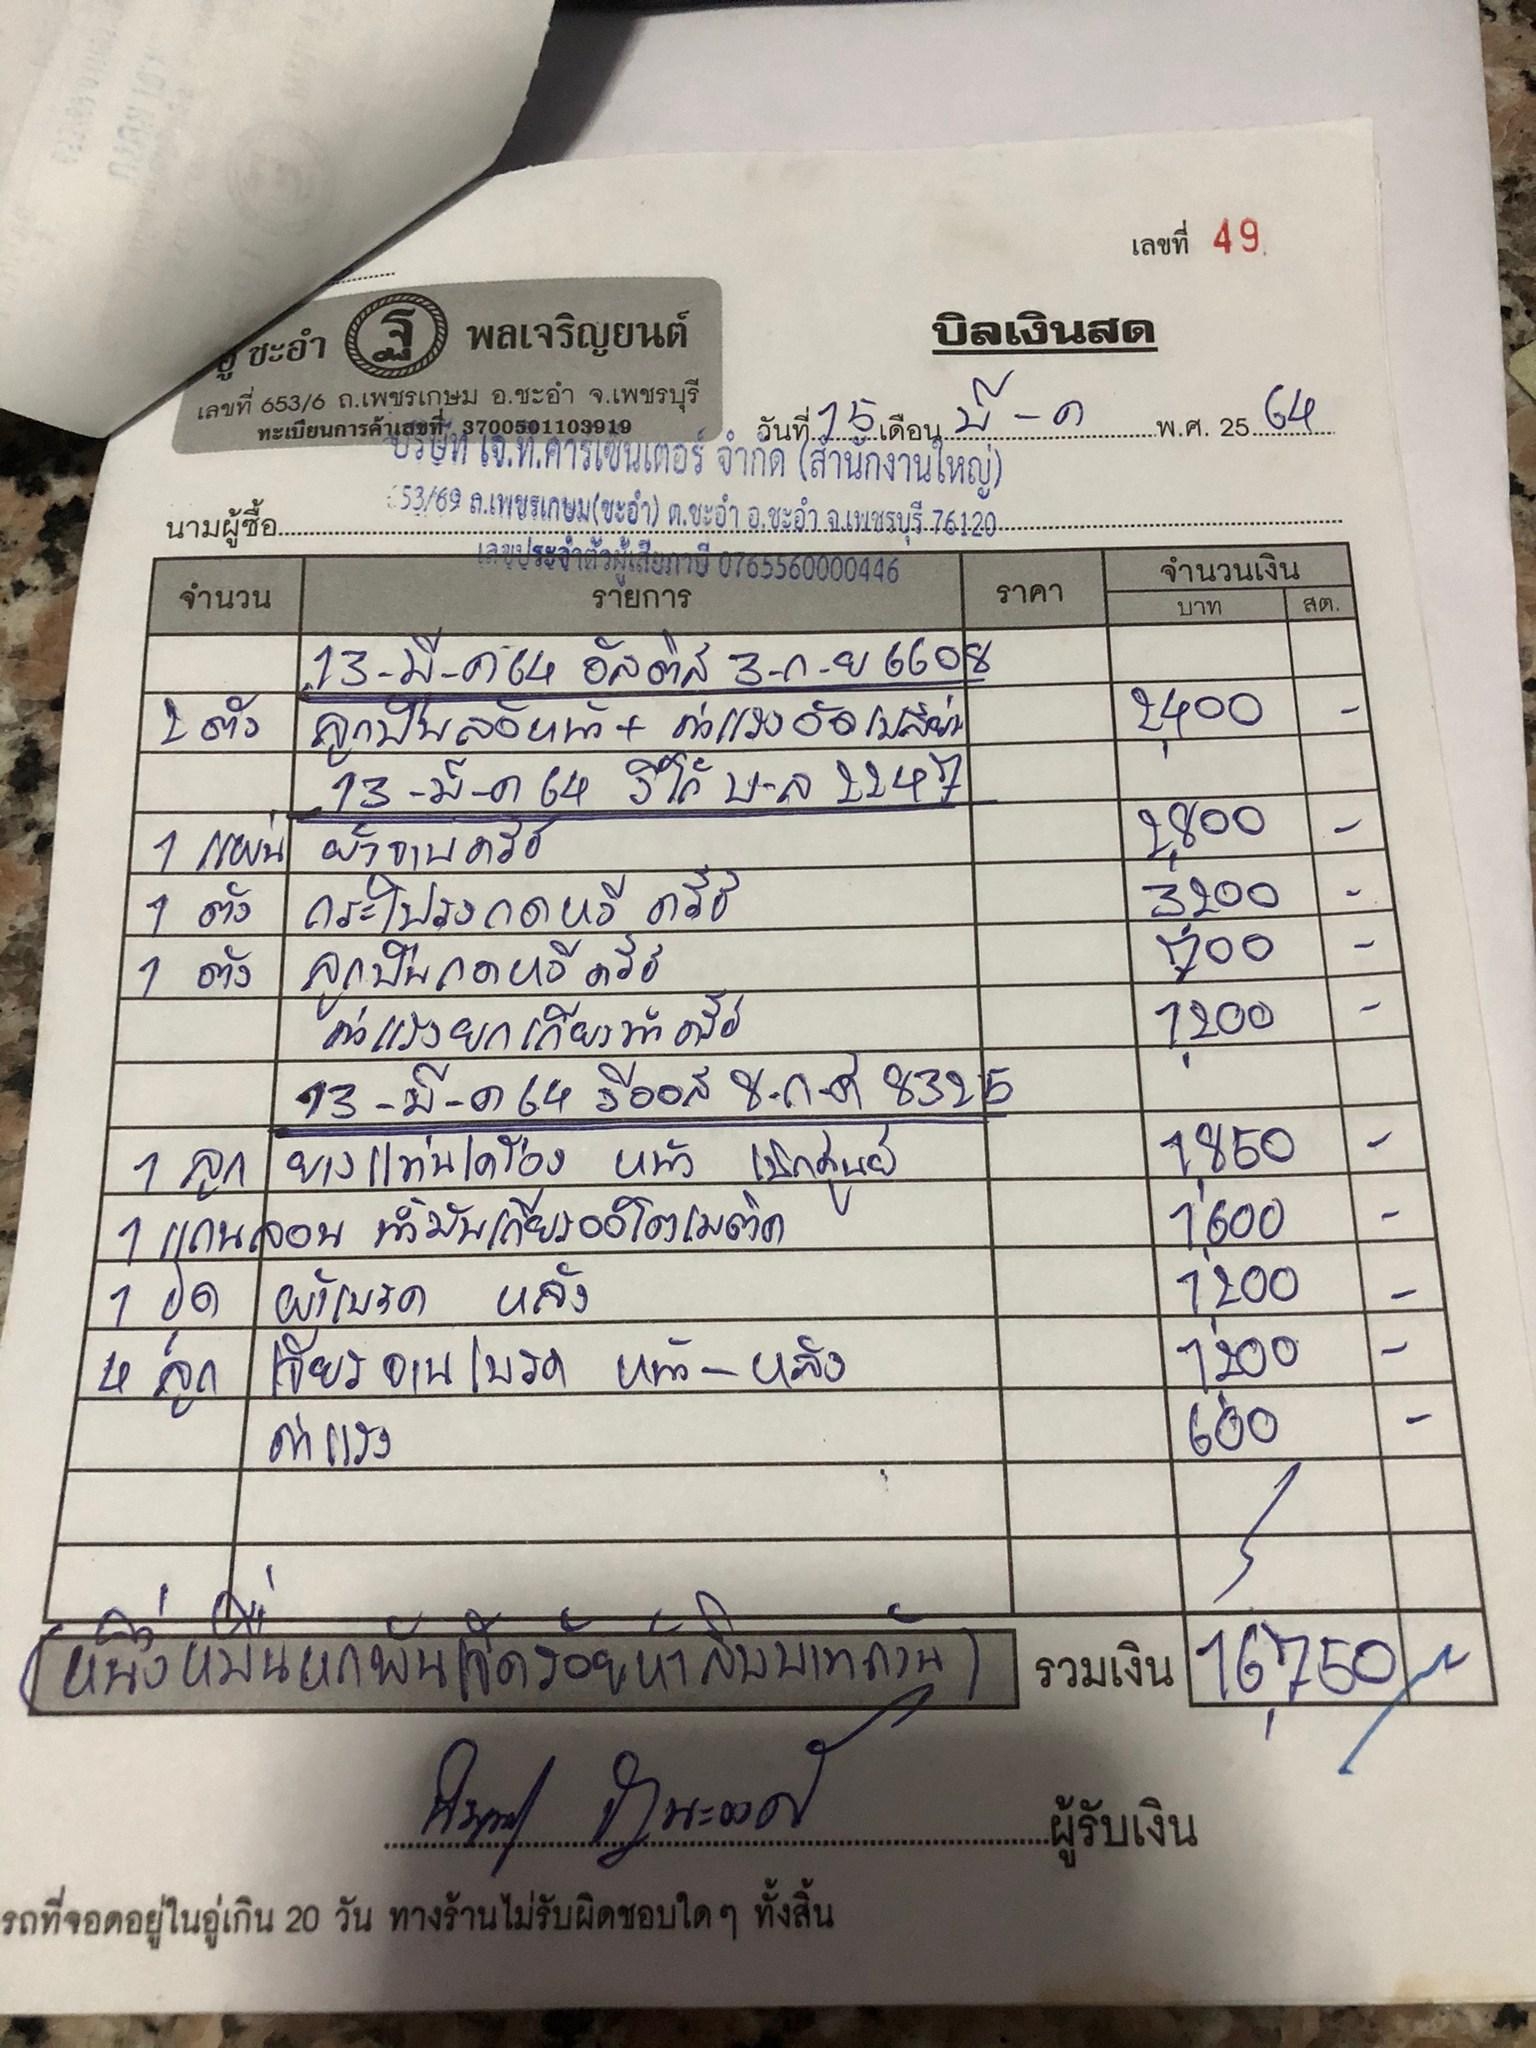 เลขที่ 49
อู่ ชะอำ ฐ พลเจริญยนต์
บิลเงินสด
เลขที่ 653/6 ถ.เพชรเกษม อ.ชะอำ จ.เพชรบุรี
ทะเบียนการค้าเลขที่ 3700501103919
วันที่ 15 เดือน มี-ค พ.ศ. 25 64
บริษัท เจ.ที.คาร์เซ็นเตอร์ จำกัด (สำนักงานใหญ่)
653/69 ถ.เพชรเกษม(ชะอำ) ต.ชะอำ อ.ชะอำ จ.เพชรบุรี 76120
นามผู้ซื้อ
เลขประจำตัวผู้เสียภาษี 0765560000446
จำนวน รายการ ราคา จำนวนเงิน
บาท สต.
13-มี-ค 64 อัลติส 3-ก-ย 6608
2 ตัว ลูกปืนล้อหน้า + ค่าแรงอัดเปลี่ยน 2,400 -
13-มี-ค 64 วีโก้ บ-ล 2247
1 แผ่น ผ้าจานครัช 2,800 -
1 ตัว กระโปรงกดหวีครัช 3,200 -
1 ตัว ลูกปืนกดหวีครัช 700 -
ค่าแรงยกเกียร์ทำครัช 1,200 -
13-มี-ค 64 วีออส 8325
1 ลูก ยางแท่นเครื่อง หน้า เบิกศูนย์ 1,850 -
1 แกนลอน น้ำมันเกียร์ออโตเมติค 1,600 -
1 ชุด ผ้าเบรค หลัง 1,200 -
4 ลูก เจียรจานเบรค หน้า-หลัง 1,200 -
ค่าแรง 600 -
(หนึ่งหมื่นหกพันเจ็ดร้อยห้าสิบบาทถ้วน) รวมเงิน 16,750 -
ผู้รับเงิน
รถที่จอดอยู่ในอู่เกิน 20 วัน ทางร้านไม่รับผิดชอบใดๆ ทั้งสิ้น